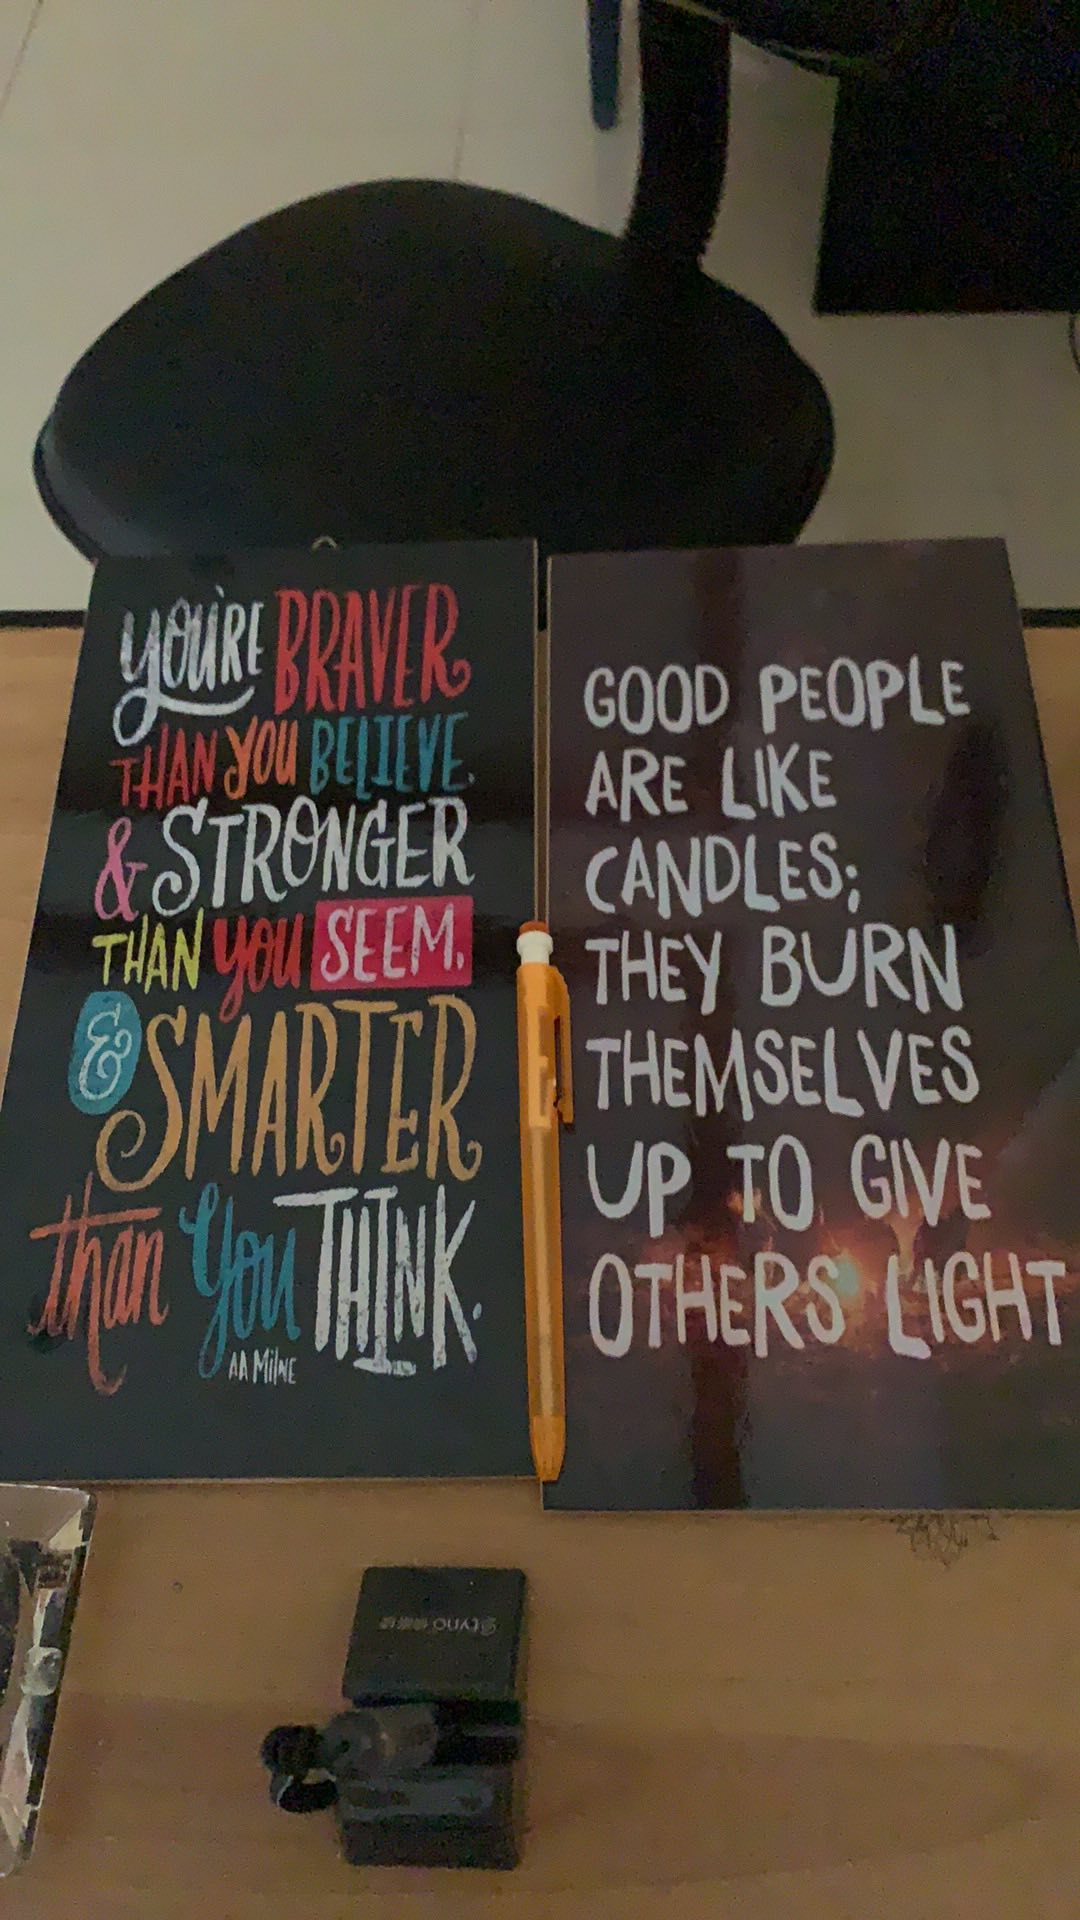 YOU'RE BRAVER
THAN YOU BELIEVE.
& STRONGER
THAN YOU SEEM.
& SMARTER
than You THINK.
AA MilNE
GOOD PEOPLE
ARE LIKE
CANDLES;
THEY BURN
THEMSELVES
UP TO GIVE
OTHERS LIGHT